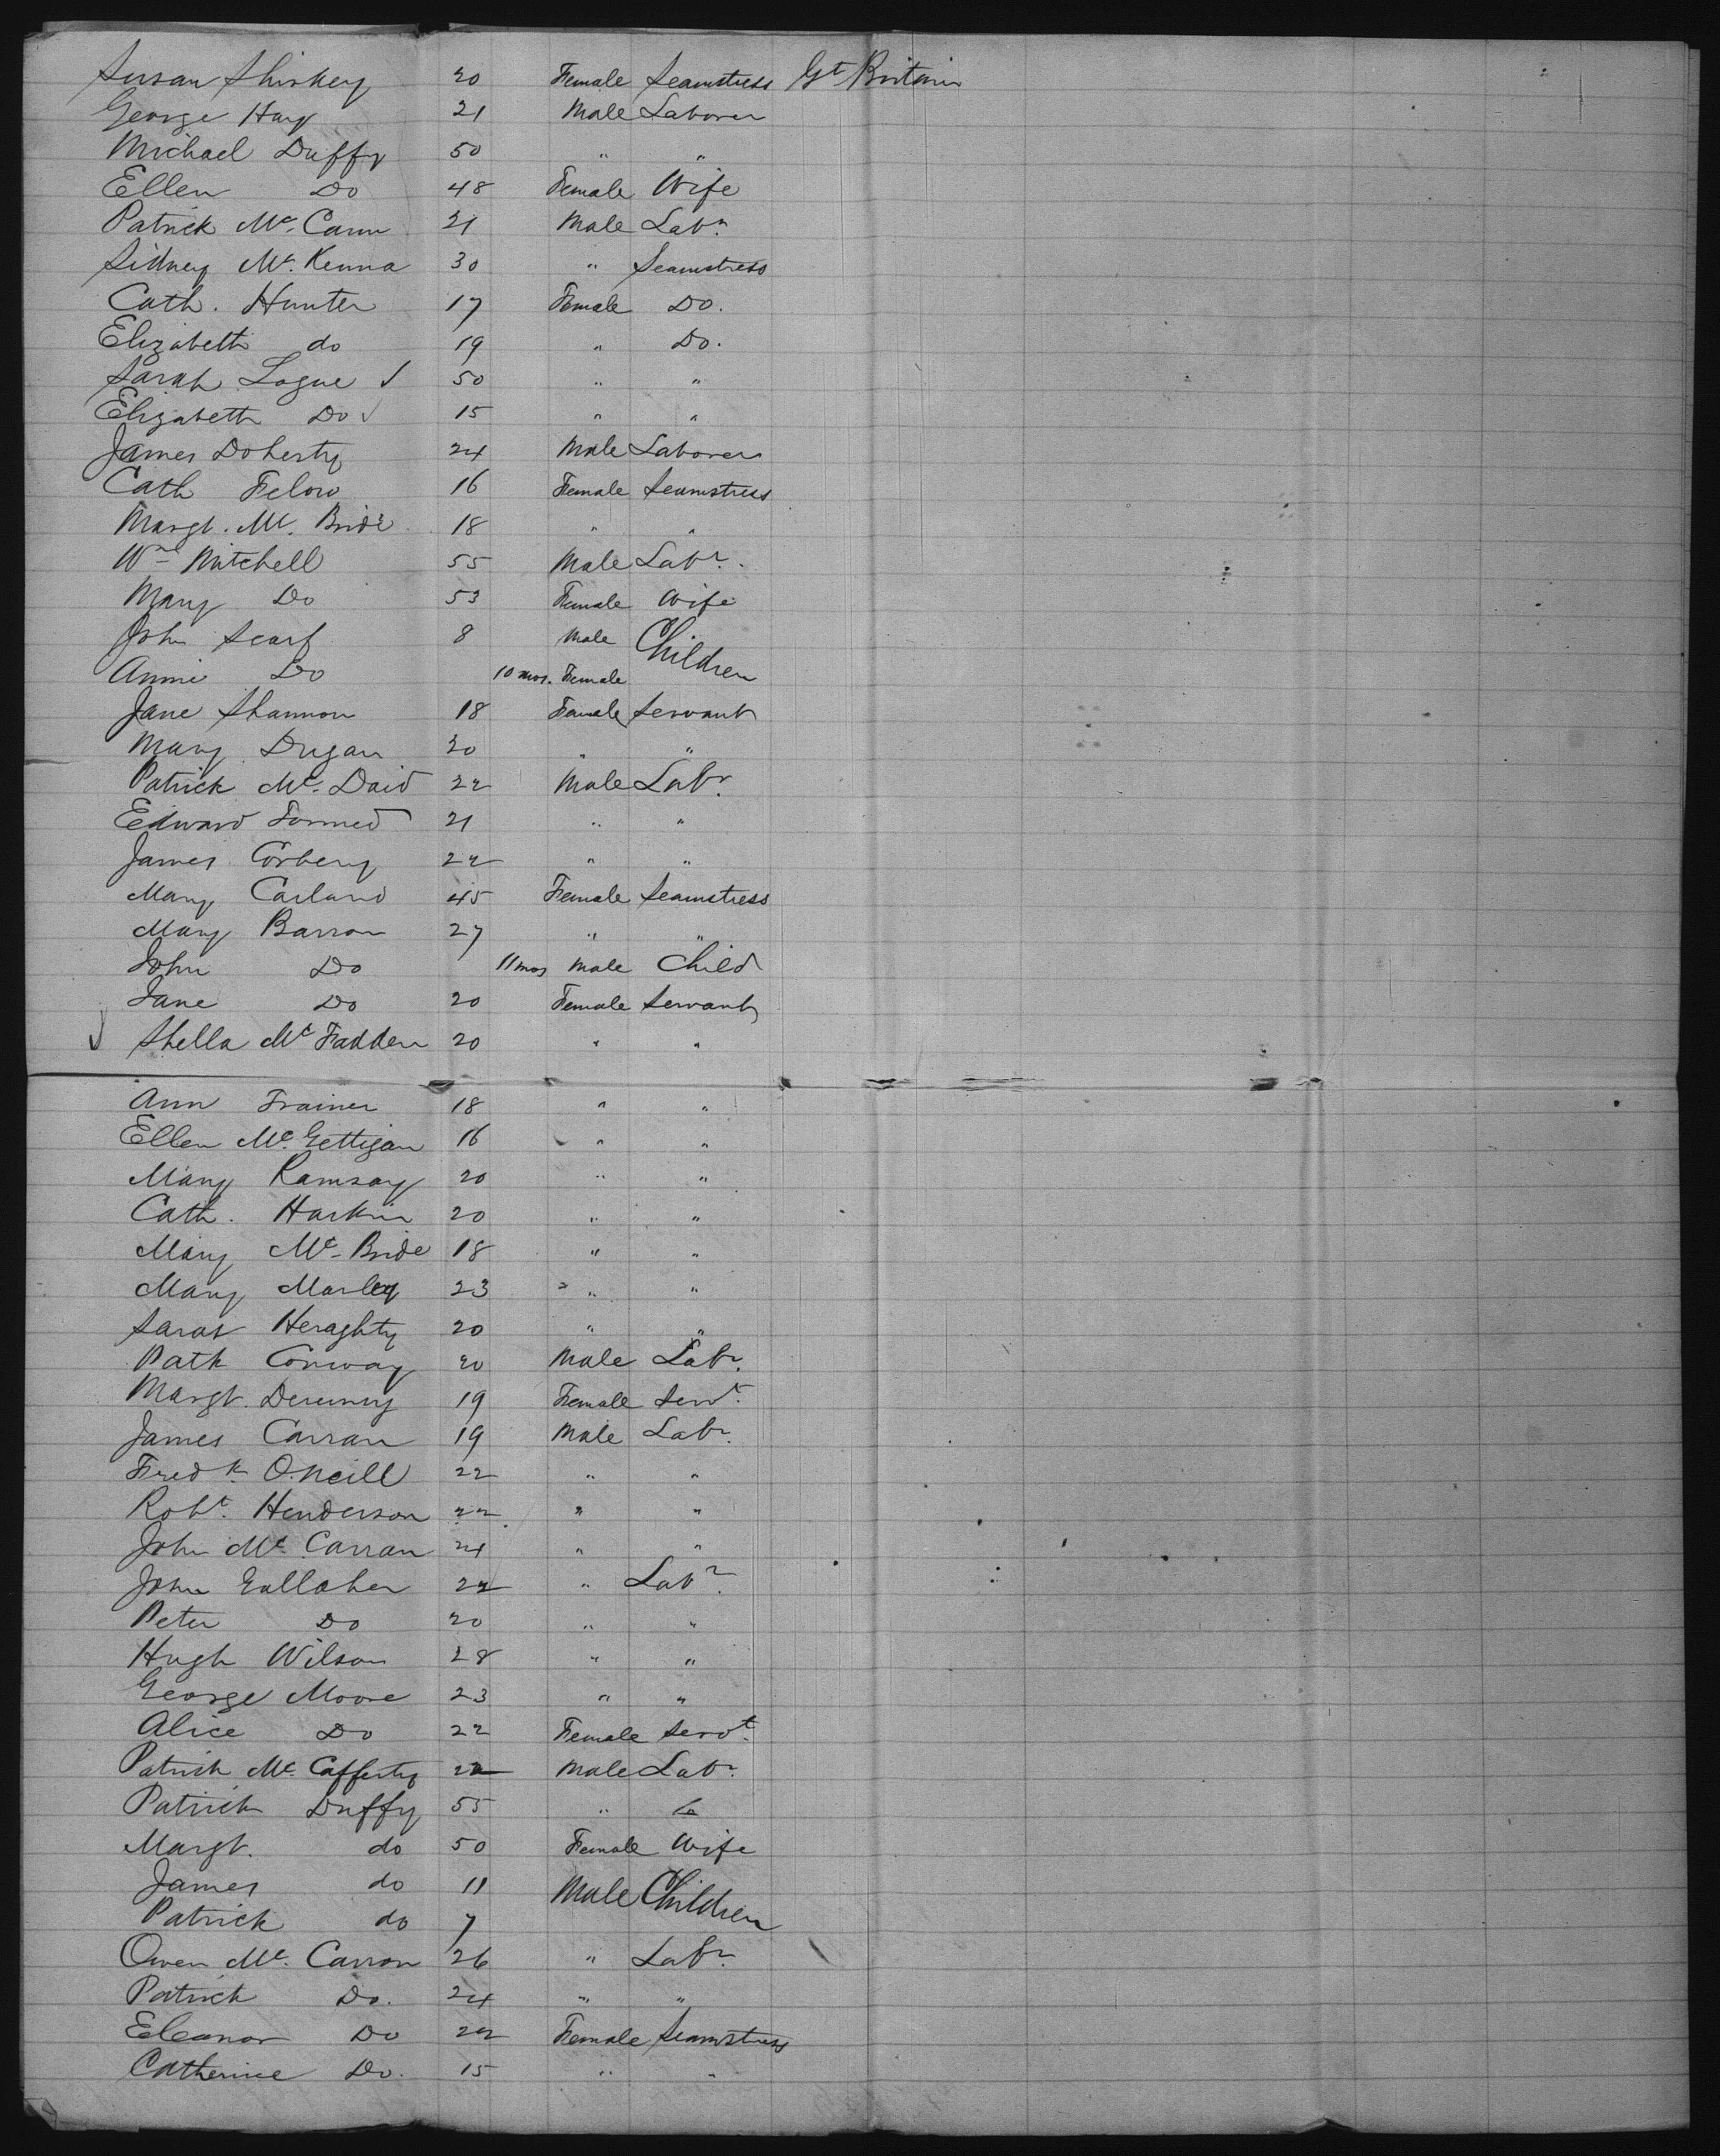 Susan Shirkey 20 Female Seamstress Gt Britain
George Hay 21 Male Laborer
Michael Duffy 50 " "
Ellen Do 48 Female Wife
Patrick Mc. Cann 21 Male Labr.
Sidney Mc. Kenna 30 " Seamstress
Cath. Hunter 17 Female Do.
Elizabeth do 19 " Do.
Sarah Logue ✓ 50 " "
Elizabeth Do ✓ 15 " "
James Doherty 24 Male Laborer
Cath 16 Female Seamstress
Margt. Mc. Bride 18 " "
Wm Mitchell 55 Male Labr.
Mary Do 53 Female Wife
John Scarf 8 Male Children
Annie Do 10 mos. Female
Jane Shannon 18 Female Servant
Mary Dugan 20 " "
Patrick Mc. Daid 22 Male Labr.
Edward 21 " "
James 22 " "
Mary Carland 45 Female Seamstress
Mary Barron 27 " "
John Do 11 mos Male Child
Jane Do 20 Female Servant
✓ Shella Mc Fadden 20 " "
Ann Trainer 18 " "
Ellen Mc. Gettigan 16 " "
Mary Ramsay 20 " "
Cath. Harkin 20 " "
Mary Mc. Bride 18 " "
Mary Marley 23 " "
Sarah Heraghty 20 " "
Patk Conway 20 Male Labr.
Margt. 19 Female Servt.
James Carran 19 Male Labr.
Fredk. O.Neill 22 " "
Robt. Henderson 22 " "
John Mc. Carran 21 " "
John Gallaher 22 " Labr.
Peter Do 20 " "
Hugh Wilson 28 " "
George Moore 23 " "
Alice Do 22 Female Servt.
Patrick Mc. Cafferty 22 Male Labr.
Patrick Duffy 55 "
Margt. do 50 Female Wife
James do 11 Male Children
Patrick do 7
Owen Mc. Carron 26 " Labr.
Patrick Do. 24 " "
Eleanor Do 22 Female Seamstress
Catherine Do. 15 " "